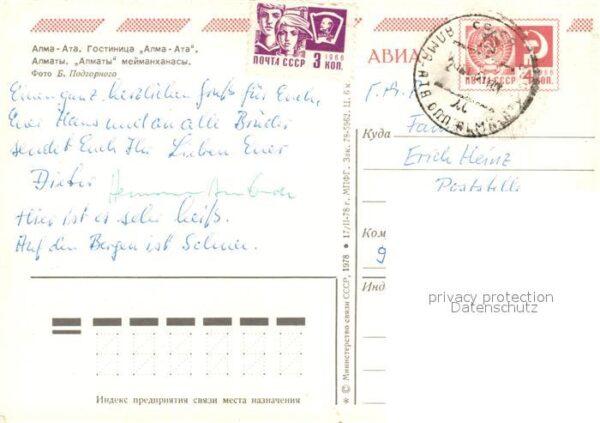 Алма-Ата. Гостиница „Алма-Ата“.
Алматы. „Алматы“ мейманханасы.
Фото Б. Подгорного
1966
ПОЧТА СССР 3 КОП.
АВИА
4 КОП.
Einen ganz herzlichen Gruß für Euch,
Euer Haus und an alle Brüder
sendet Euch Ihr Lieben Euer
Dieter
Hier ist es sehr heiß.
Auf den Bergen ist Schnee.
Куда
Fam
Erich Heinz
Poststelle
Ком
9
Инд
privacy protection
Datenschutz
Индекс предприятия связи места назначения
© Министерство связи СССР, 1978 ● 17/II-78 г. МПФГ. Зак. 78-5962. Ц. 6 к.